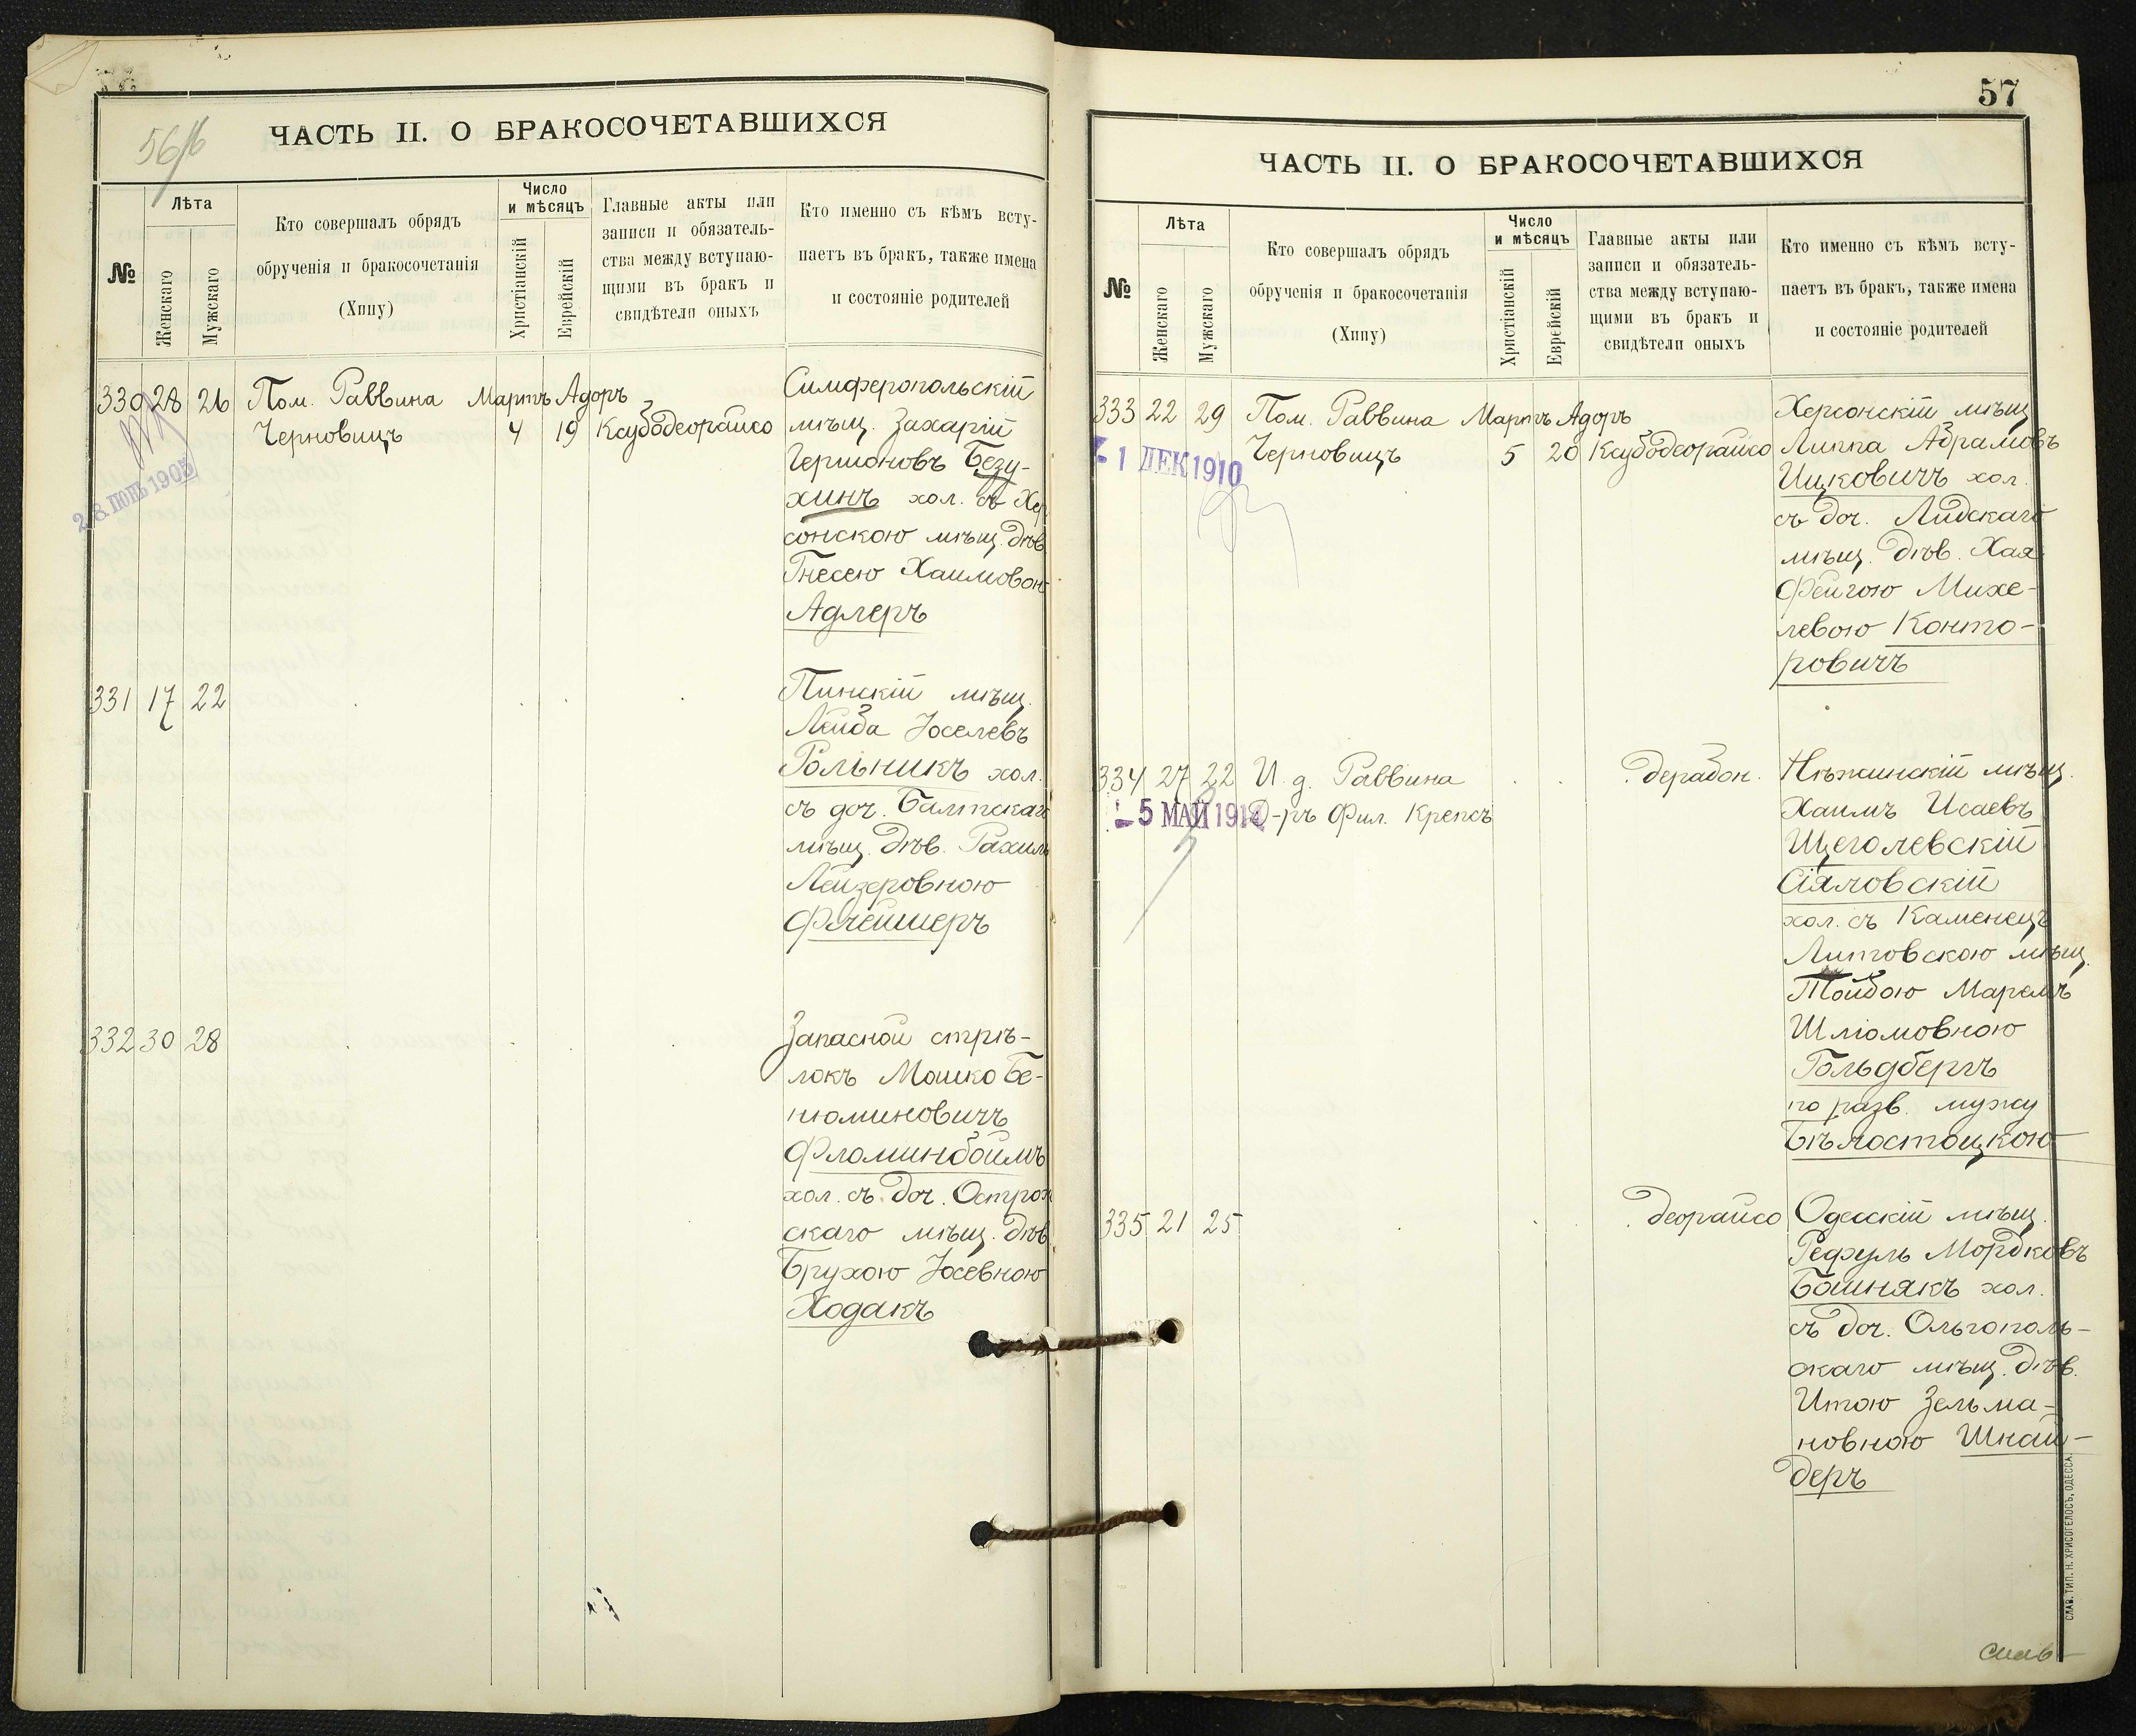 56/б
ЧАСТЬ II. О БРАКОСОЧЕТАВШИХСЯ
№
Лѣта
Женскаго
Мужскаго
Кто совершалъ обрядъ
обрученія и бракосочетанія
(Хипу)
Число
и мѣсяцъ
Христіанскій
Еврейскій
Главные акты или
записи и обязатель-
ства между вступаю-
щими въ бракъ и
свидѣтели оныхъ
Кто именно съ кѣмъ всту-
паетъ въ бракъ, также имена
и состояніе родителей
330 28 26 Пом. Раввина Мартъ Адоръ
Черновицъ 4 19 Ксубодеорайсо
28 ІЮНЬ 1905
Симферопольскій
мѣщ. Захарій
Гершоновъ Безу-
хинъ хол. съ Хер
сонскою мѣщ. дѣв.
Гнесею Хаимовон
Адлеръ
331 17 22
Пинскій мѣщ.
Лейба Іоселевъ
Рольникъ хол.
съ доч. Балтскаго
мѣщ. дѣв. Рахиль
Лейзеровною
Флейшеръ
332 30 28
Запасной стрѣ-
локъ Мошко Бе-
нюминовичъ
Фломинбоймъ
хол. съ доч. Острож
скаго мѣщ. дѣв
Брухою Іосевною
Ходакъ
57
ЧАСТЬ II. О БРАКОСОЧЕТАВШИХСЯ
№
Лѣта
Женскаго
Мужскаго
Кто совершалъ обрядъ
обрученія и бракосочетанія
(Хипу)
Число
и мѣсяцъ
Христіанскій
Еврейскій
Главные акты или
записи и обязатель-
ства между вступаю-
щими въ бракъ и
свидѣтели оныхъ
Кто именно съ кѣмъ всту-
паетъ въ бракъ, также имена
и состояніе родителей
333 22 29 Пом. Раввина Мартъ Адоръ
Черновицъ 5 20 Ксубодеорайсо
1 ДЕК 1910
Херсонскій мѣщ
Липпа Абрамовъ
Ицковичъ хол.
съ доч. Лидскаго
мѣщ. дѣв. Хая
Фейгою Михе-
левою Конто-
ровичъ
334 27 22 И. д. Раввина дерабон.
5 МАЙ 191 Д-ръ Фил. Крепсъ
Нѣжинскій мѣщ.
Хаимъ Исаевъ
Щеголевскій
Сіяловскій
хол. съ Каменецъ
Литовскою мѣщ.
Тойбою Маремъ
Шліомовною
Гольдбергъ
по разв. мужу
Бѣлостоцкою
335 21 25 деорайсо
Одесскій мѣщ.
Рефуль Мордковъ
Башнякъ хол.
съ доч. Ольгополь-
скаго мѣщ. дѣв.
Итою Зельма-
новною Шнай-
деръ
СЛАВ. ТИП. Н. ХРИСОГЕЛОСЪ, ОДЕССА.